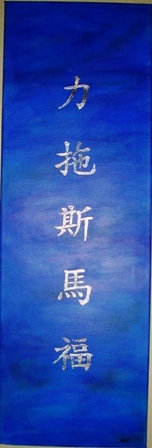 力拖斯馬福